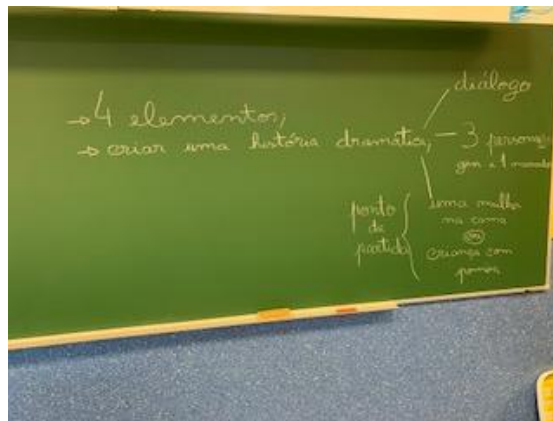 → 4 elementos;
→ criar uma história dramática;
diálogo
3 persona-
gens e 1
ponto
de
partida
uma
na cama
ou
criança com